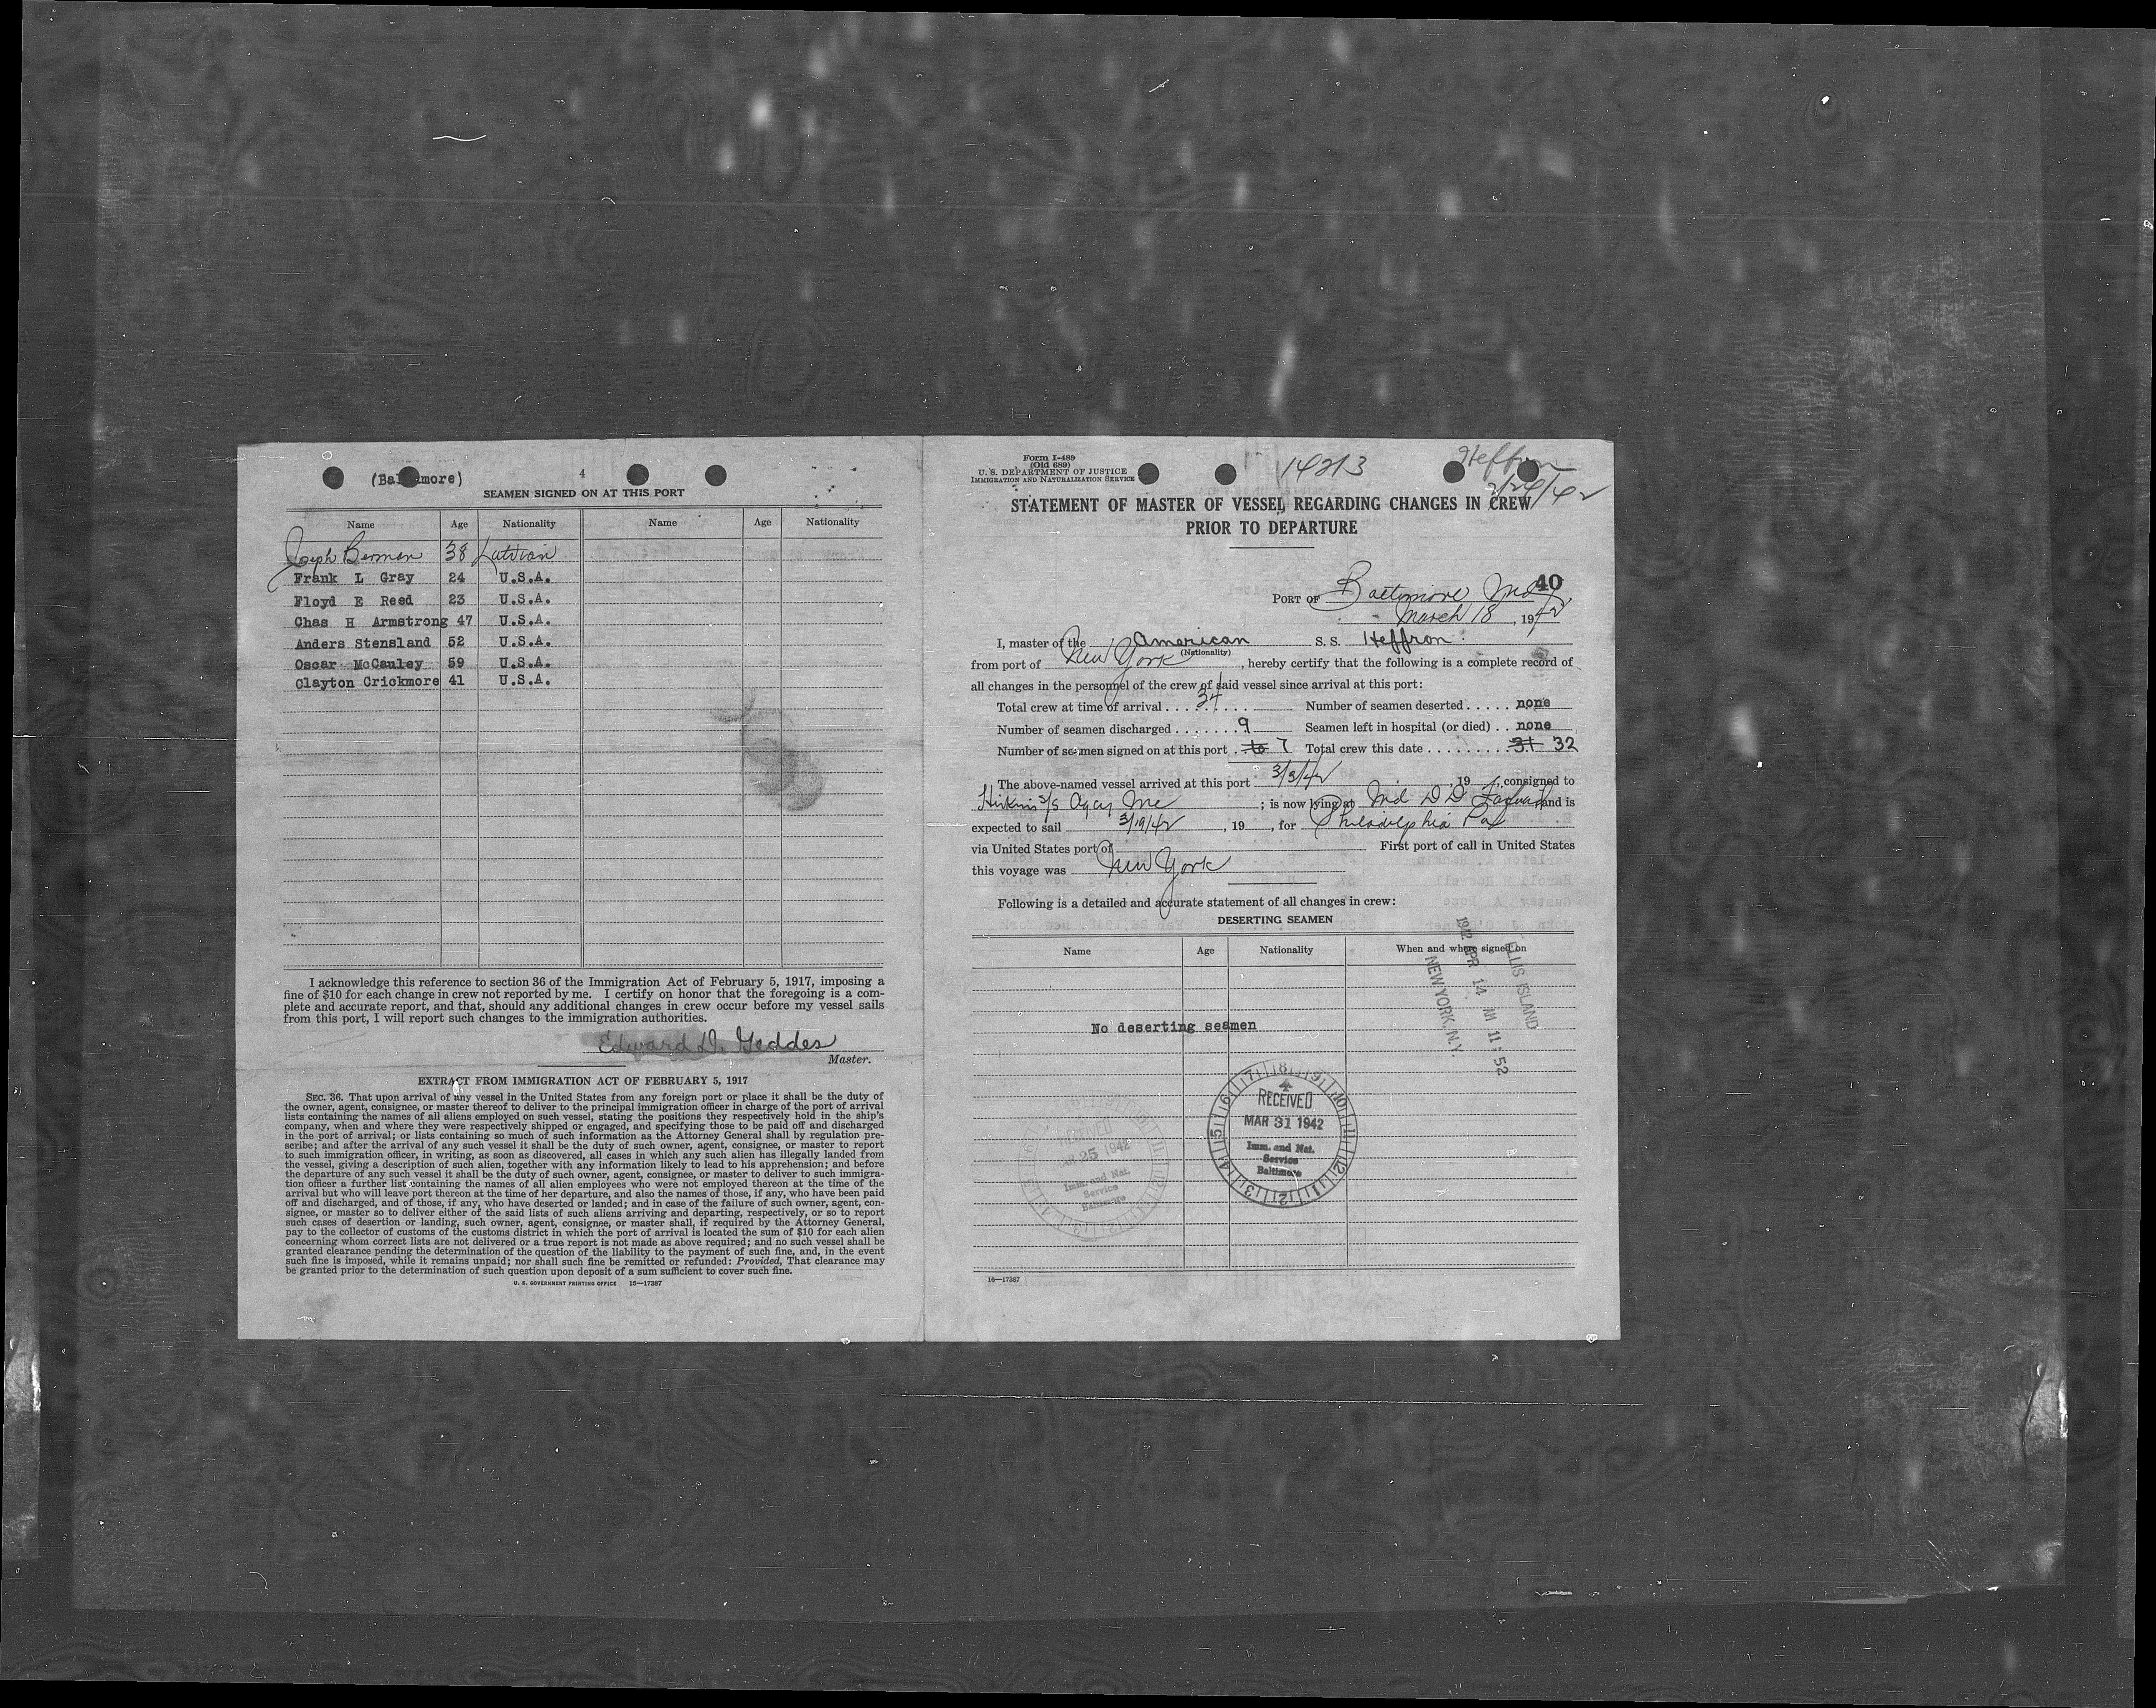 (Baltimore)
4
SEAMEN SIGNED ON AT THIS PORT
Name Age Nationality Name Age Nationality
Joseph Berman 38 Latvian
Frank L Gray 24 U.S.A.
Floyd E Reed 23 U.S.A.
Chas H Armstrong 47 U.S.A.
Anders Stensland 52 U.S.A.
Oscar McCauley 59 U.S.A.
Clayton Crickmore 41 U.S.A.
I acknowledge this reference to section 36 of the Immigration Act of February 5, 1917, imposing a
fine of $10 for each change in crew not reported by me. I certify on honor that the foregoing is a com-
plete and accurate report, and that, should any additional changes in crew occur before my vessel sails
from this port, I will report such changes to the immigration authorities.
Edward D. Geddes
Master.
EXTRACT FROM IMMIGRATION ACT OF FEBRUARY 5, 1917
SEC. 36. That upon arrival of any vessel in the United States from any foreign port or place it shall be the duty of
the owner, agent, consignee, or master thereof to deliver to the principal immigration officer in charge of the port of arrival
lists containing the names of all aliens employed on such vessel, stating the positions they respectively hold in the ship's
company, when and where they were respectively shipped or engaged, and specifying those to be paid off and discharged
in the port of arrival; or lists containing so much of such information as the Attorney General shall by regulation pre-
scribe; and after the arrival of any such vessel it shall be the duty of such owner, agent, consignee, or master to report
to such immigration officer, in writing, as soon as discovered, all cases in which any such alien has illegally landed from
the vessel, giving a description of such alien, together with any information likely to lead to his apprehension; and before
the departure of any such vessel it shall be the duty of such owner, agent, consignee, or master to deliver to such immigra-
tion officer a further list containing the names of all alien employees who were not employed thereon at the time of the
arrival but who will leave port thereon at the time of her departure, and also the names of those, if any, who have been paid
off and discharged, and of those, if any, who have deserted or landed; and in case of the failure of such owner, agent, con-
signee, or master so to deliver either of the said lists of such aliens arriving and departing, respectively, or so to report
such cases of desertion or landing, such owner, agent, consignee, or master shall, if required by the Attorney General,
pay to the collector of customs of the customs district in which the port of arrival is located the sum of $10 for each alien
concerning whom correct lists are not delivered or a true report is not made as above required; and no such vessel shall be
granted clearance pending the determination of the question of the liability to the payment of such fine, and, in the event
such fine is imposed, while it remains unpaid; nor shall such fine be remitted or refunded: Provided, That clearance may
be granted prior to the determination of such question upon deposit of a sum sufficient to cover such fine.
U. S. GOVERNMENT PRINTING OFFICE 16—17387
Form I-489
(Old 689)
U. S. DEPARTMENT OF JUSTICE
IMMIGRATION AND NATURALIZATION SERVICE
14213
Heffron
2/24/42
STATEMENT OF MASTER OF VESSEL REGARDING CHANGES IN CREW
PRIOR TO DEPARTURE
40
PORT OF Baltimore Md
March 18, 1942
I, master of the American S. S. Heffron
(Nationality)
from port of New York, hereby certify that the following is a complete record of
all changes in the personnel of the crew of said vessel since arrival at this port:
Total crew at time of arrival . . . 34 Number of seamen deserted . . . . . none
Number of seamen discharged . . . . . . . 9 Seamen left in hospital (or died) . . none
Number of seamen signed on at this port . 7 Total crew this date . . . . . . . . . 31 32
The above-named vessel arrived at this port 3/3/42, 19, consigned to
S/S Agcy Inc; is now lying at Md D D and is
expected to sail 3/19/42, 19, for Philadelphia Pa
via United States port of First port of call in United States
this voyage was New York
Following is a detailed and accurate statement of all changes in crew:
DESERTING SEAMEN
Name Age Nationality When and where signed on
No deserting seamen
ELLIS ISLAND
1942 APR 14 AM 11:52
NEW YORK, N.Y.
RECEIVED
MAR 31 1942
Imm. and Nat.
Service
Baltimore
RECEIVED
MAR 25 1942
Imm. and Nat.
Service
Baltimore
16—17387